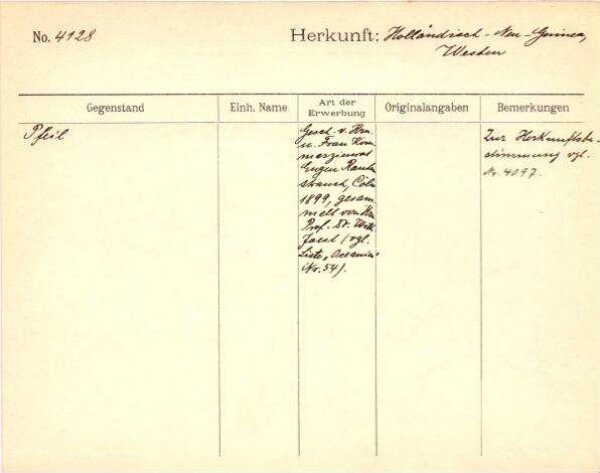 No. 4128
Herkunft: Holländisch-Neu-Guinea,
Westen
Gegenstand
Einh. Name
Art der
Erwerbung
Originalangaben
Bemerkungen
Pfeil
Gesch. v. Hrn.
u. Frau Kom
merzienrat
Eugen Rauten
strauch, Cöln
1899, gesam
melt von Hn.
Prof. Dr. Wilh.
Joest (vgl.
Liste „Oceanien"
Nr. 54).
Zur Herkunftsbe-
stimmung vgl.
Nr. 4097.